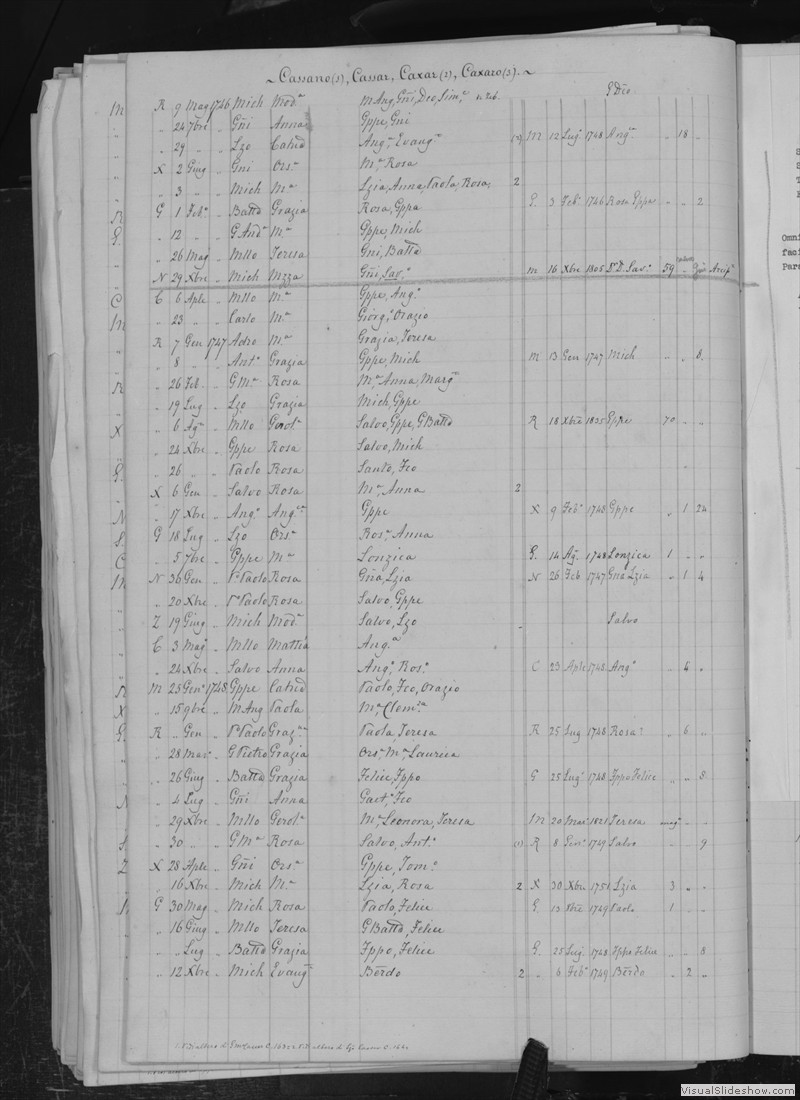 ~ Cassano(s), Cassar, Caxar(s), Caxaro(s). ~
M R 9 Mag 1746 Mich Mod.a M Ang, Gñi, Deo, Sim.e
" " 24 7bre " Gñi Anna Gppe, Gni
" " 29 " " Lzo Catrd Ang.a Evang.a M 12 Lug 1748 Ang.a " 18 "
X 2 Giug " Gni Ors.a M.a Rosa
" 3 " " Mich M.a Lzia, Anna, Paola, Rosa, 2
R G 1 Feb.o " Battd Grazia Rosa, Gppa G. 3 Feb.o 1746 Rosa Gppa " " 2
G. " 12 " " G And.a M.a Gppe, Mich
" " 26 Mag " Mllo Teresa Gni, Battd
N 29 Xbre " Mich Nzza Gñi, Sav.o M 16 Xbre 1805 Dr. D. Sav.o 59
C C 6 Aple " Mllo M.a Gppe, Ang.a
M " 23 " " Carlo M.a Giorg.o Orazio
R 7 Gen 1747 Adeo M.a Grazia, Teresa
" " 8 " " Ant.o Grazia Gppe, Mich M 13 Gen 1747 Mich " " 8
R " 26 Feb " G M.a Rosa M.a Anna, Marg.a
" 19 Lug " Lzo Grazia Mich, Gppe
X " 6 Ag.o " Mllo Gerol.a Salvo, Gppe, G Battd R 18 Xbre 1835 Gppe 70 " "
" 24 Xbre " Gppe Rosa Salvo, Mich
G. " 26 " " Paolo Rosa Santo, Fco
X 6 Gen " Salvo Rosa M.a Anna 2
N " 17 Xbre " Ang.o Ang.ca Gppe X 9 Feb.o 1748 Gppe " 1 24
S. G 18 Lug " Lzo Ors.a Ros.a Anna
C " 5 7bre " Gppe M.a Lonzica G. 14 Ag.o 1748 Lonzica 1 " "
M N 30 Gen " P.o Paolo Rosa Gña, Lzia N 26 Feb 1747 Gna Lzia " 1 4
" 20 Xbre " P.o Paolo Rosa Salvo, Gppe
Z 19 Giug " Mich Mod.a Salvo, Lzo Salvo
C 3 Mag.o " Mllo Mattia Ang.a
" 24 Xbre " Salvo Anna Ang.a Ros.a C 23 Aple 1748 Ang.a " 4 "
R M 23 Gen.o 1748 Gppe Catrd Paolo, Fco, Orazio
X " 15 9bre " M Ang Paola M.a Clem.a
G. R " Gen " P.o Paolo Graz.a Paola, Teresa R 25 Lug 1748 Rosa " 6 "
" " 28 Mar.o " G Pietro Grazia Ors.a M.a Laurica
" 26 Giug " Battd Grazia Felice, Fppo G 25 Lug.o 1748 Fppo Felice " " 8
N " 4 Lug " Gñi Anna Gaet.o Fco
" 29 Xbre " Mllo Gerol.a M.a Leonora, Teresa M 20 Mar 1821 Teresa
S. " 30 " " G M.a Rosa Salvo, Ant.o (1) R 8 Gen.o 1749 Salvo " " 9
Z X 28 Aple " Gñi Ors.a Gppe, Tom.o
" 16 Xbre " Mich M.a Lzia, Rosa 2 X 30 Xbre 1751 Lzia 3 " "
G 30 Mag " Mich Rosa Paolo, Felice G. 13 1749 Paolo 1 "
" 16 Giug " Mllo Teresa G Battd, Felice
" " Lug " Battd Grazia Fppo, Felice G. 25 Lug 1748 Fppo Felice " " 8
" 12 Xbre " Mich Evang.a Berdo 2 " 6 Feb.o 1749 Berdo " 2 "
Omni
faci
Paro
VisualSlideshow.com